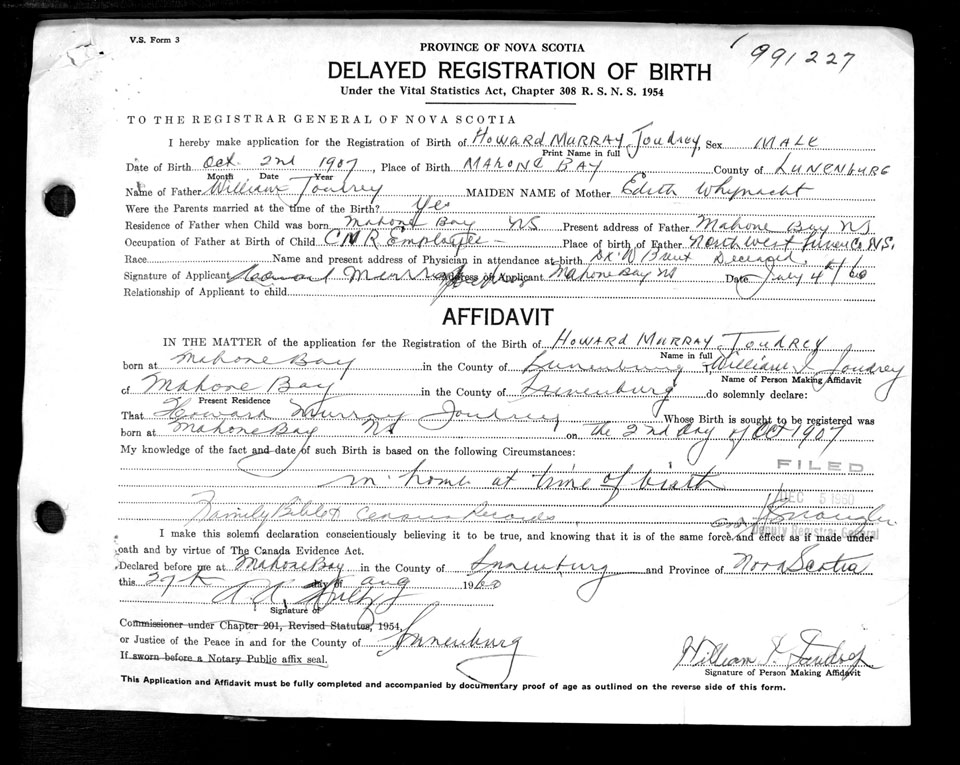 V.S. Form 3
991227
PROVINCE OF NOVA SCOTIA
DELAYED REGISTRATION OF BIRTH
Under the Vital Statistics Act, Chapter 308 R. S. N. S. 1954
TO THE REGISTRAR GENERAL OF NOVA SCOTIA
I hereby make application for the Registration of Birth of HOWARD MURRAY JOUDREY, Sex MALE
Print Name in full
Date of Birth Oct. 2nd 1907, Place of Birth MAHONE BAY County of LUNENBURG
Month Date Year
Name of Father William Joudrey MAIDEN NAME of Mother Edith Whynacht
Were the Parents married at the time of the Birth? Yes
Residence of Father when Child was born Mahone Bay NS Present address of Father Mahone Bay NS
Occupation of Father at Birth of Child CNR Employee Place of birth of Father North West Lunen Co. N.S.
Race Name and present address of Physician in attendance at birth Dr. Deceased.
Signature of Applicant Howard Murray Address of Applicant Mahone Bay NS Date July 4th/60
Relationship of Applicant to child
AFFIDAVIT
IN THE MATTER of the application for the Registration of the Birth of HOWARD MURRAY JOUDREY
Name in full
born at Mahone Bay in the County of Lunenburg, William I. Joudrey
Name of Person Making Affidavit
of Mahone Bay in the County of Lunenburg do solemnly declare:
Present Residence
That Howard Murray Joudrey Whose Birth is sought to be registered was
born at Mahone Bay NS on the 2nd day of Oct 1907
My knowledge of the fact and date of such Birth is based on the following Circumstances:
FILED
in home at time of birth
DEC 5 1960
Family Bible & Census Records
Deputy Registrar General
I make this solemn declaration conscientiously believing it to be true, and knowing that it is of the same force and effect as if made under
oath and by virtue of The Canada Evidence Act.
Declared before me at Mahone Bay in the County of Lunenburg and Province of Nova Scotia
this 27th day of Aug 1960
Signature of
Commissioner under Chapter 201, Revised Statutes, 1954,
or Justice of the Peace in and for the County of Lunenburg
If sworn before a Notary Public affix seal.
William I. Joudrey
Signature of Person Making Affidavit
This Application and Affidavit must be fully completed and accompanied by documentary proof of age as outlined on the reverse side of this form.